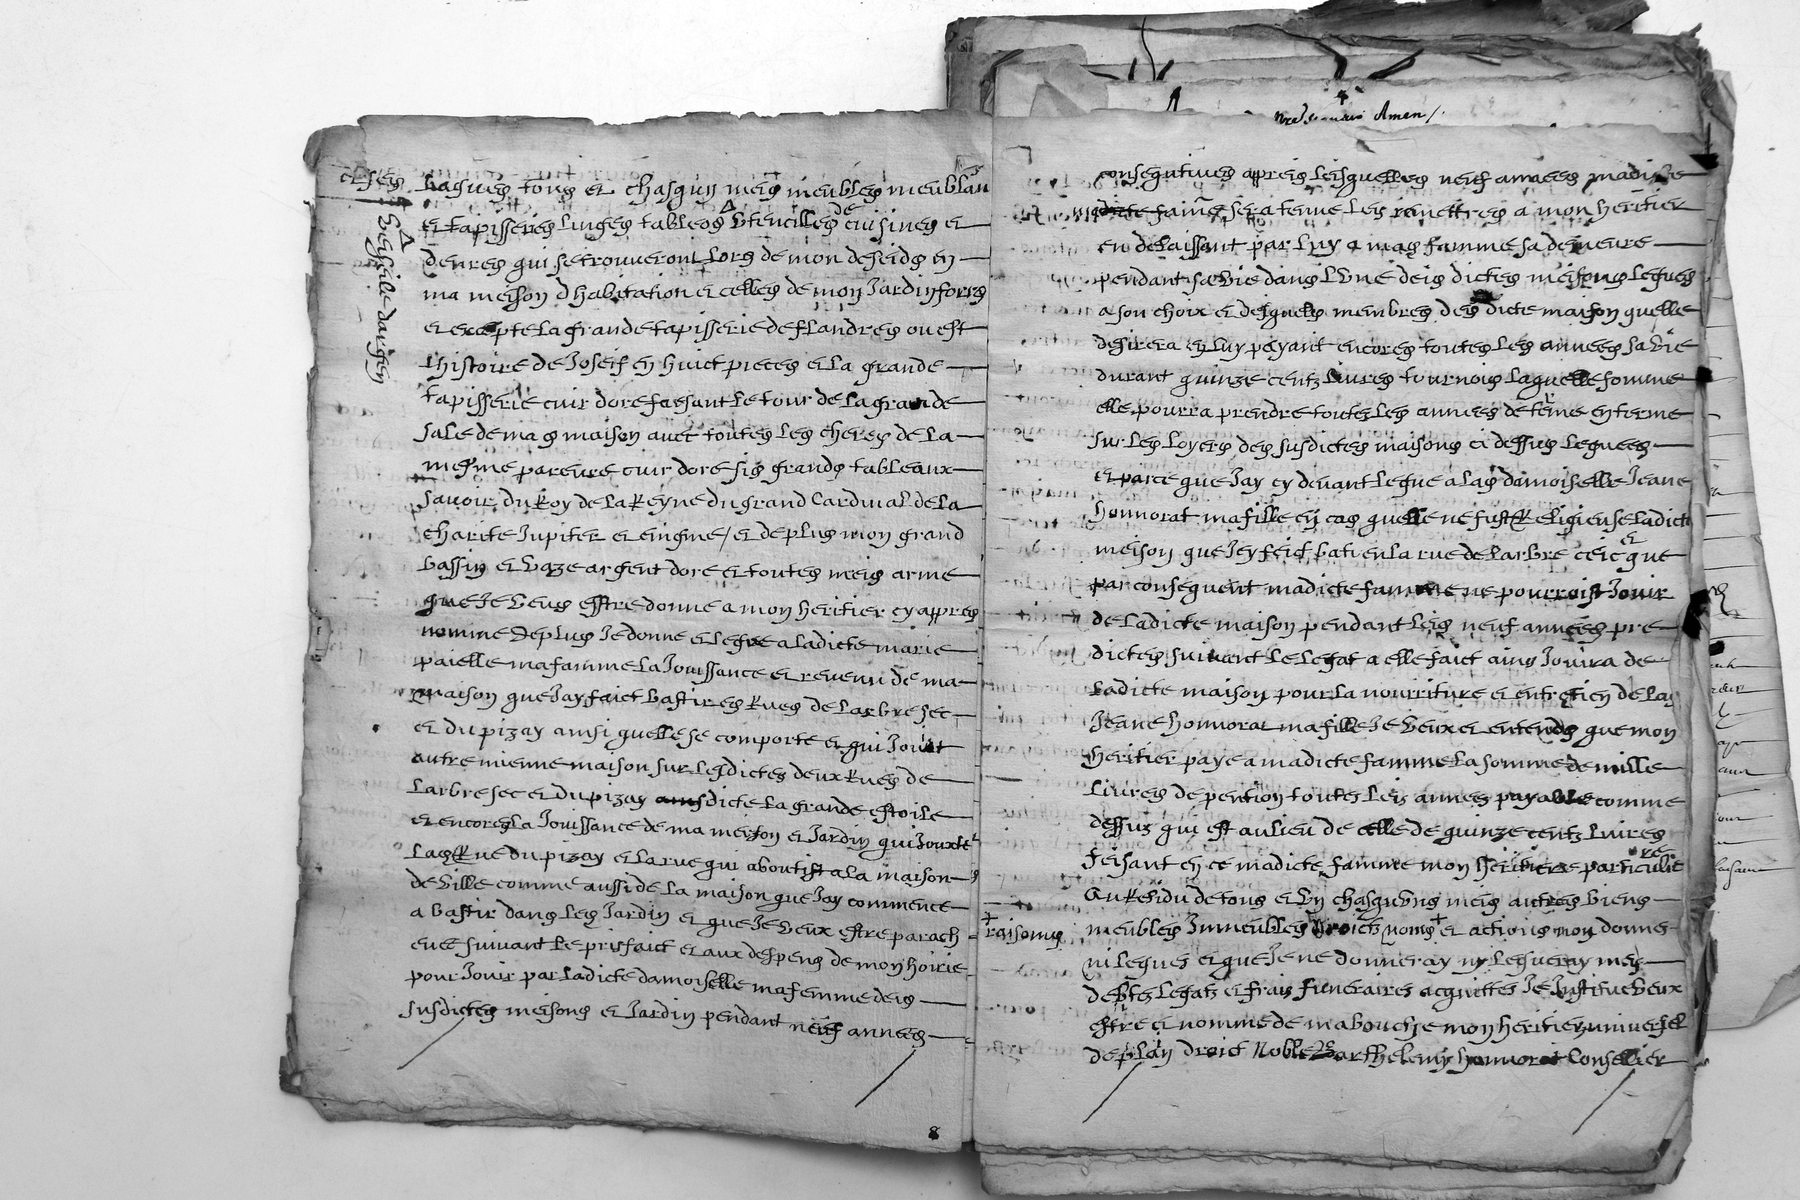 bagues tous et chasqun meis meubles meublan
et tapisseries linges tableos utencilles de cuisines et
denres qui se trouveront lors de mon deseids en
ma meison d habitation et celles de mon Jardin forts
et excepte la grande tapisserie de flandres ou est
lhistoire de Joseif en huict pieces et la grande
tapisserie cuir dore faesant le tour de la grande
sale de ma maison avec toutes les cheres de la
mesme pareure cuir dore sis grands tableaux
savoir du Roy de la Reyne du grand Cardinal de la
charite Jupiter et enigme / et de plus mon grand
bassin et vaze argent dore et toutes meis arme
que Je veus esstre donne a mon heritier cy appres
nomme De plus Je donne et legue a ladicte marie
paielle ma famme la Jouissance et revenu de ma
maison que Jay faict bastir es Rues de larbre sec
et du pizay ainsi quelle se comporte et qui Jouxt
autre mienne maison sur lesdictes deux Rues de
larbre sec et du pizay dicte la grande estoile
et encores la Jouissance de ma meison et Jardin qui Jouxte
Rue du pizay et la rue qui aboutist a la maison
de ville comme aussi de la maison que Jay commence
a bastir dans les Jardin et que Je veux estre parach
evee suivant le prisfaict et aux despens de mon hoirie
pour Jouir par ladicte damoiselle ma femme deis
susdictes meisons et Jardin pendant neuf annees
Veiselle dargen
8
Amen /.
consequtives appreis leisquelles neuf annees madicte
famme sera tenue les remettres a mon heritier
en delaissant par luy a mas famme sa demeure
pendant sa vie dans lune deis dictes meisons legues
a son choix et desquels membres des dicte maison quelle
desirera en luy payant encores toutes les annees sa vie
durant quinze centz livres tournois laquelle somme
elle pourra prendre toutes les annees de terme en terme
sur les loyers des susdictes maisons ci dessus leguees
et parce que Jay cy devant legue a las damoiselle Jeane
honnorat ma fille en cas quelle ne fust Religieuse ladicte
meison que Jey feict batir en la rue de larbre ceic et que
par consequent madicte famme ne pourroist Jouir
de ladicte maison pendant leis neuf annees pre
dictes suivant le legat a elle faict ains Jouira de
ladicte maison pour la nourriture et entretien de la
Jeane honnorat ma fille Je veux et entends que mon
heritier paye a madicte famme la somme de mille
livres de pention toutes leis annes payable comme
dessus qui est au lieu de celle de quinze centz livres
feisant en ce madicte famme mon heritiere particuliere
Au Residu de tous et un chasquuns meis autres biens
meubles Immeubles droictz noms raisonns et actions non donne
ni legues et que Je ne donneray ny legueray mes
debtz legatz et frais funeraires acquittes Je Institue veux
estre et nomme de ma bouche mon heritier universel
de plain droict Noble Barthelemy honnorat Conseiller